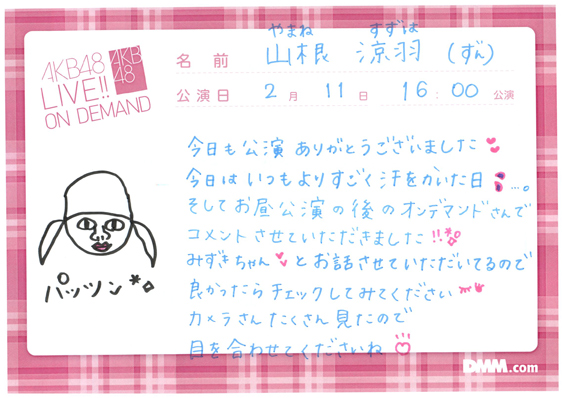 AKB48
LIVE!!
ON DEMAND
AKB
48
やまね すずは
名前 山根 涼羽 (ずん)
公演日 2月 11日 16:00 公演
今日も公演ありがとうございました
今日はいつもよりすごく汗をかいた日 …。
そしてお昼公演の後のオンデマンドさんで
コメントさせていただきました!!
みずきちゃん とお話させていただいてるので
良かったらチェックしてみてください
カメラさんたくさん見たので
目を合わせてくださいね
パッツン
DMM.com